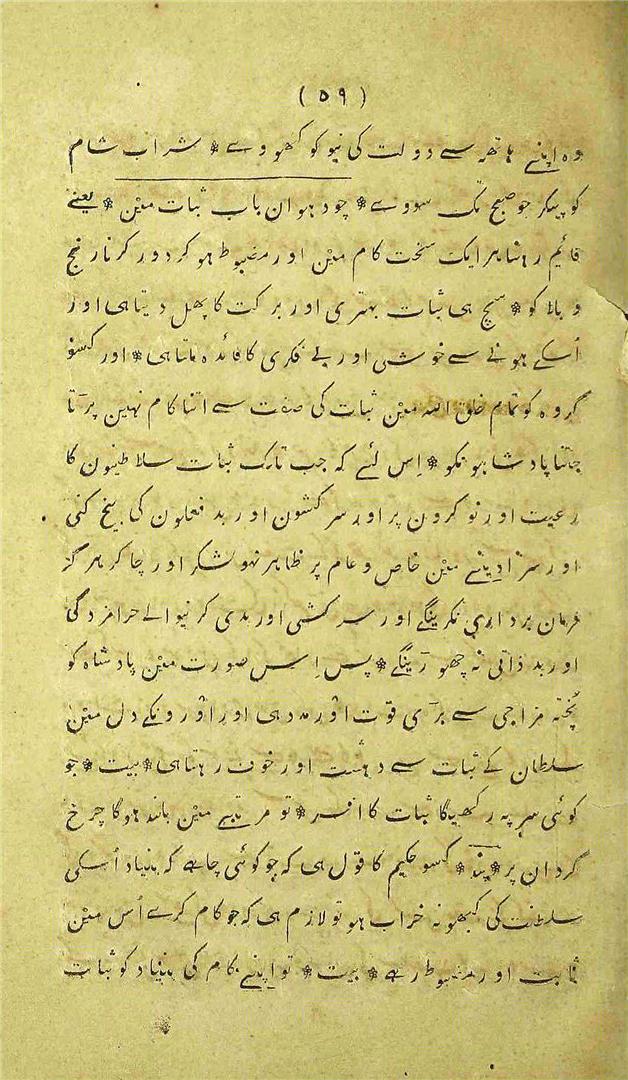 ( ۵۹ )
وہ اپنے ہاتھہ سے دولت کی نیو کو کھووے * شراب شام
کو پیکر جو صبح تک سووے * چودہوان باب ثبات مین * یعنے
قائیم رہنا ہر ایک سخت کام مین اور مضبوط ہو کر دور کرنا رنج
و بلا کو * سچ ہی ثبات بہتری اور برکت کا پھل دیتا ہی اور
اُسکے ہونے سے خوشی اور بے فکری کا فائدہ ملتا ہی * اور کسو
گروہ کو تمام خلق اللہ مین ثبات کی صفت سے اتنا کام نہین پرتا
جتنا پادشاہونکو * اِس لئے کہ جب تلک ثبات سلاطینون کا
رعیت اور نوکرون پر اور سرکشون اور بد فعلون کی بیخ کنی
اور سزا دینے مین خاص و عام پر ظاہر نہو لشکر اور چاکر ہرگز
فرمان برداری نکرینگے اور سرکشی اور بدی کرنیوالے حرامزدگی
اور بد ذاتی نہ چھورینگے * پس اِس صورت مین پادشاہ کو
پُختہ مزاجی سے بری قوت اور مدد ہی اور اورونکے دل مین
سلطان کے ثبات سے دہشت اور خوف رہتا ہی * بیت * جو
کوئی سر پہ رکھیگا ثبات کا افسر * تو مرتبے مین بلند ہوگا چرخ
گردان پر * پند * کسو حکیم کا قول ہی کہ جو کوئی چاہے کہ بنیاد اُسکی
سلطنت کی کبھو نہ خراب ہو تو لازم ہی کہ جو کام کرے اُس مین
ثابت اور مضبوط رہے * بیت * تو اپنے کام کی بنیاد کو ثبات